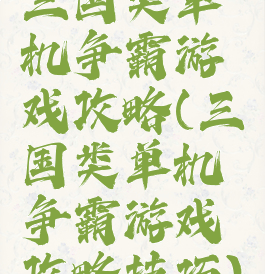 三国类单
机争霸游
戏攻略(三
国类单机
争霸游戏
攻略技巧)